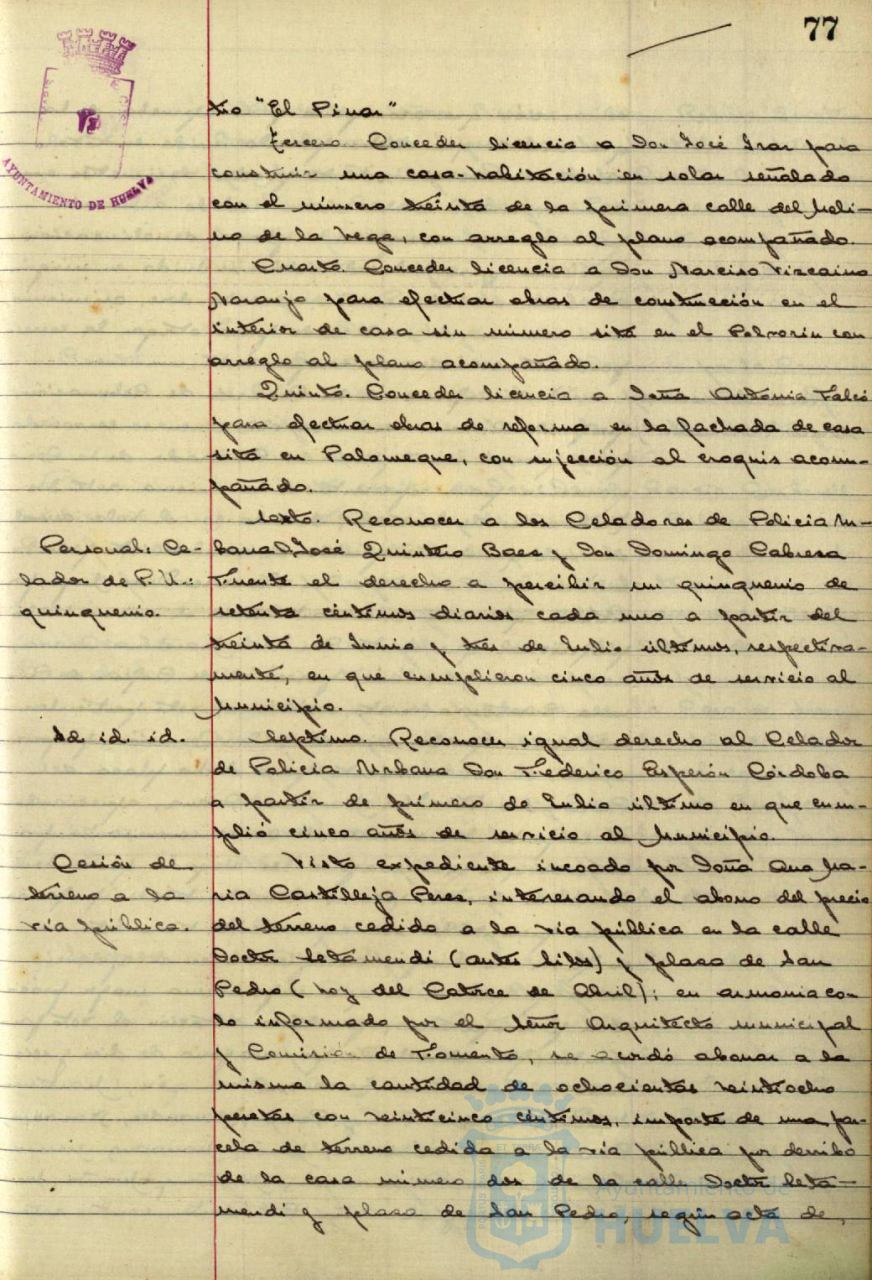 77
AYUNTAMIENTO DE HUELVA
tio "El Pinar"
Tercero. Conceder licencia a Don José para
construir una casa-habitación en solar señalado
con el número treinta de la primera calle del Moli-
no de la Vega, con arreglo al plano acompañado.
Cuarto. Conceder licencia a Don Narciso Vizcaino
Naranjo para efectuar obras de construcción en el
interior de casa sin número sita en el Polvorin con
arreglo al plano acompañado.
Quinto. Conceder licencia a Doña Antonia Falcó
para efectuar obras de reforma en la fachada de casa
sita en Palomeque, con sujección al croquis acom-
pañado.
Sexto. Reconocer a los Celadores de Policia Ur-
Personal: Ce-
lador de P. U.:
quinquenio.
bana D. José Quintero Baez y Don Domingo Cabrera
Fuente el derecho a percibir un quinquenio de
setenta céntimos diarios cada uno a partir del
treinta de Junio y tres de Julio últimos, respectiva-
mente, en que cumplieron cinco años de servicio al
Municipio.
Id id. id.
Septimo. Reconocer igual derecho al Celador
de Policia Urbana Don Federico Esperón Córdoba
a partir de primero de Julio último en que cum-
plió cinco años de servicio al Municipio.
Cesión de
terreno a la
via pública.
Visto expediente incoado por Doña Ana Ma-
ria Castilleja Perez, interesando el abono del precio
del terreno cedido a la via pública en la calle
Doctor Letamendi (antes Silos) y plaza de San
Pedro (hoy del Catorce de Abril); en armonia con
lo informado por el Señor Arquitecto municipal
y Comisión de Fomento, se acordó abonar a la
misma la cantidad de ochocientas veintiocho
pesetas con veinticinco céntimos, importe de una par-
cela de terreno cedida a la via pública por derribo
de la casa número dos de la calle Doctor Leta-
mendi y plaza de San Pedro, según acta de,
Ayuntamiento de
HUELVA